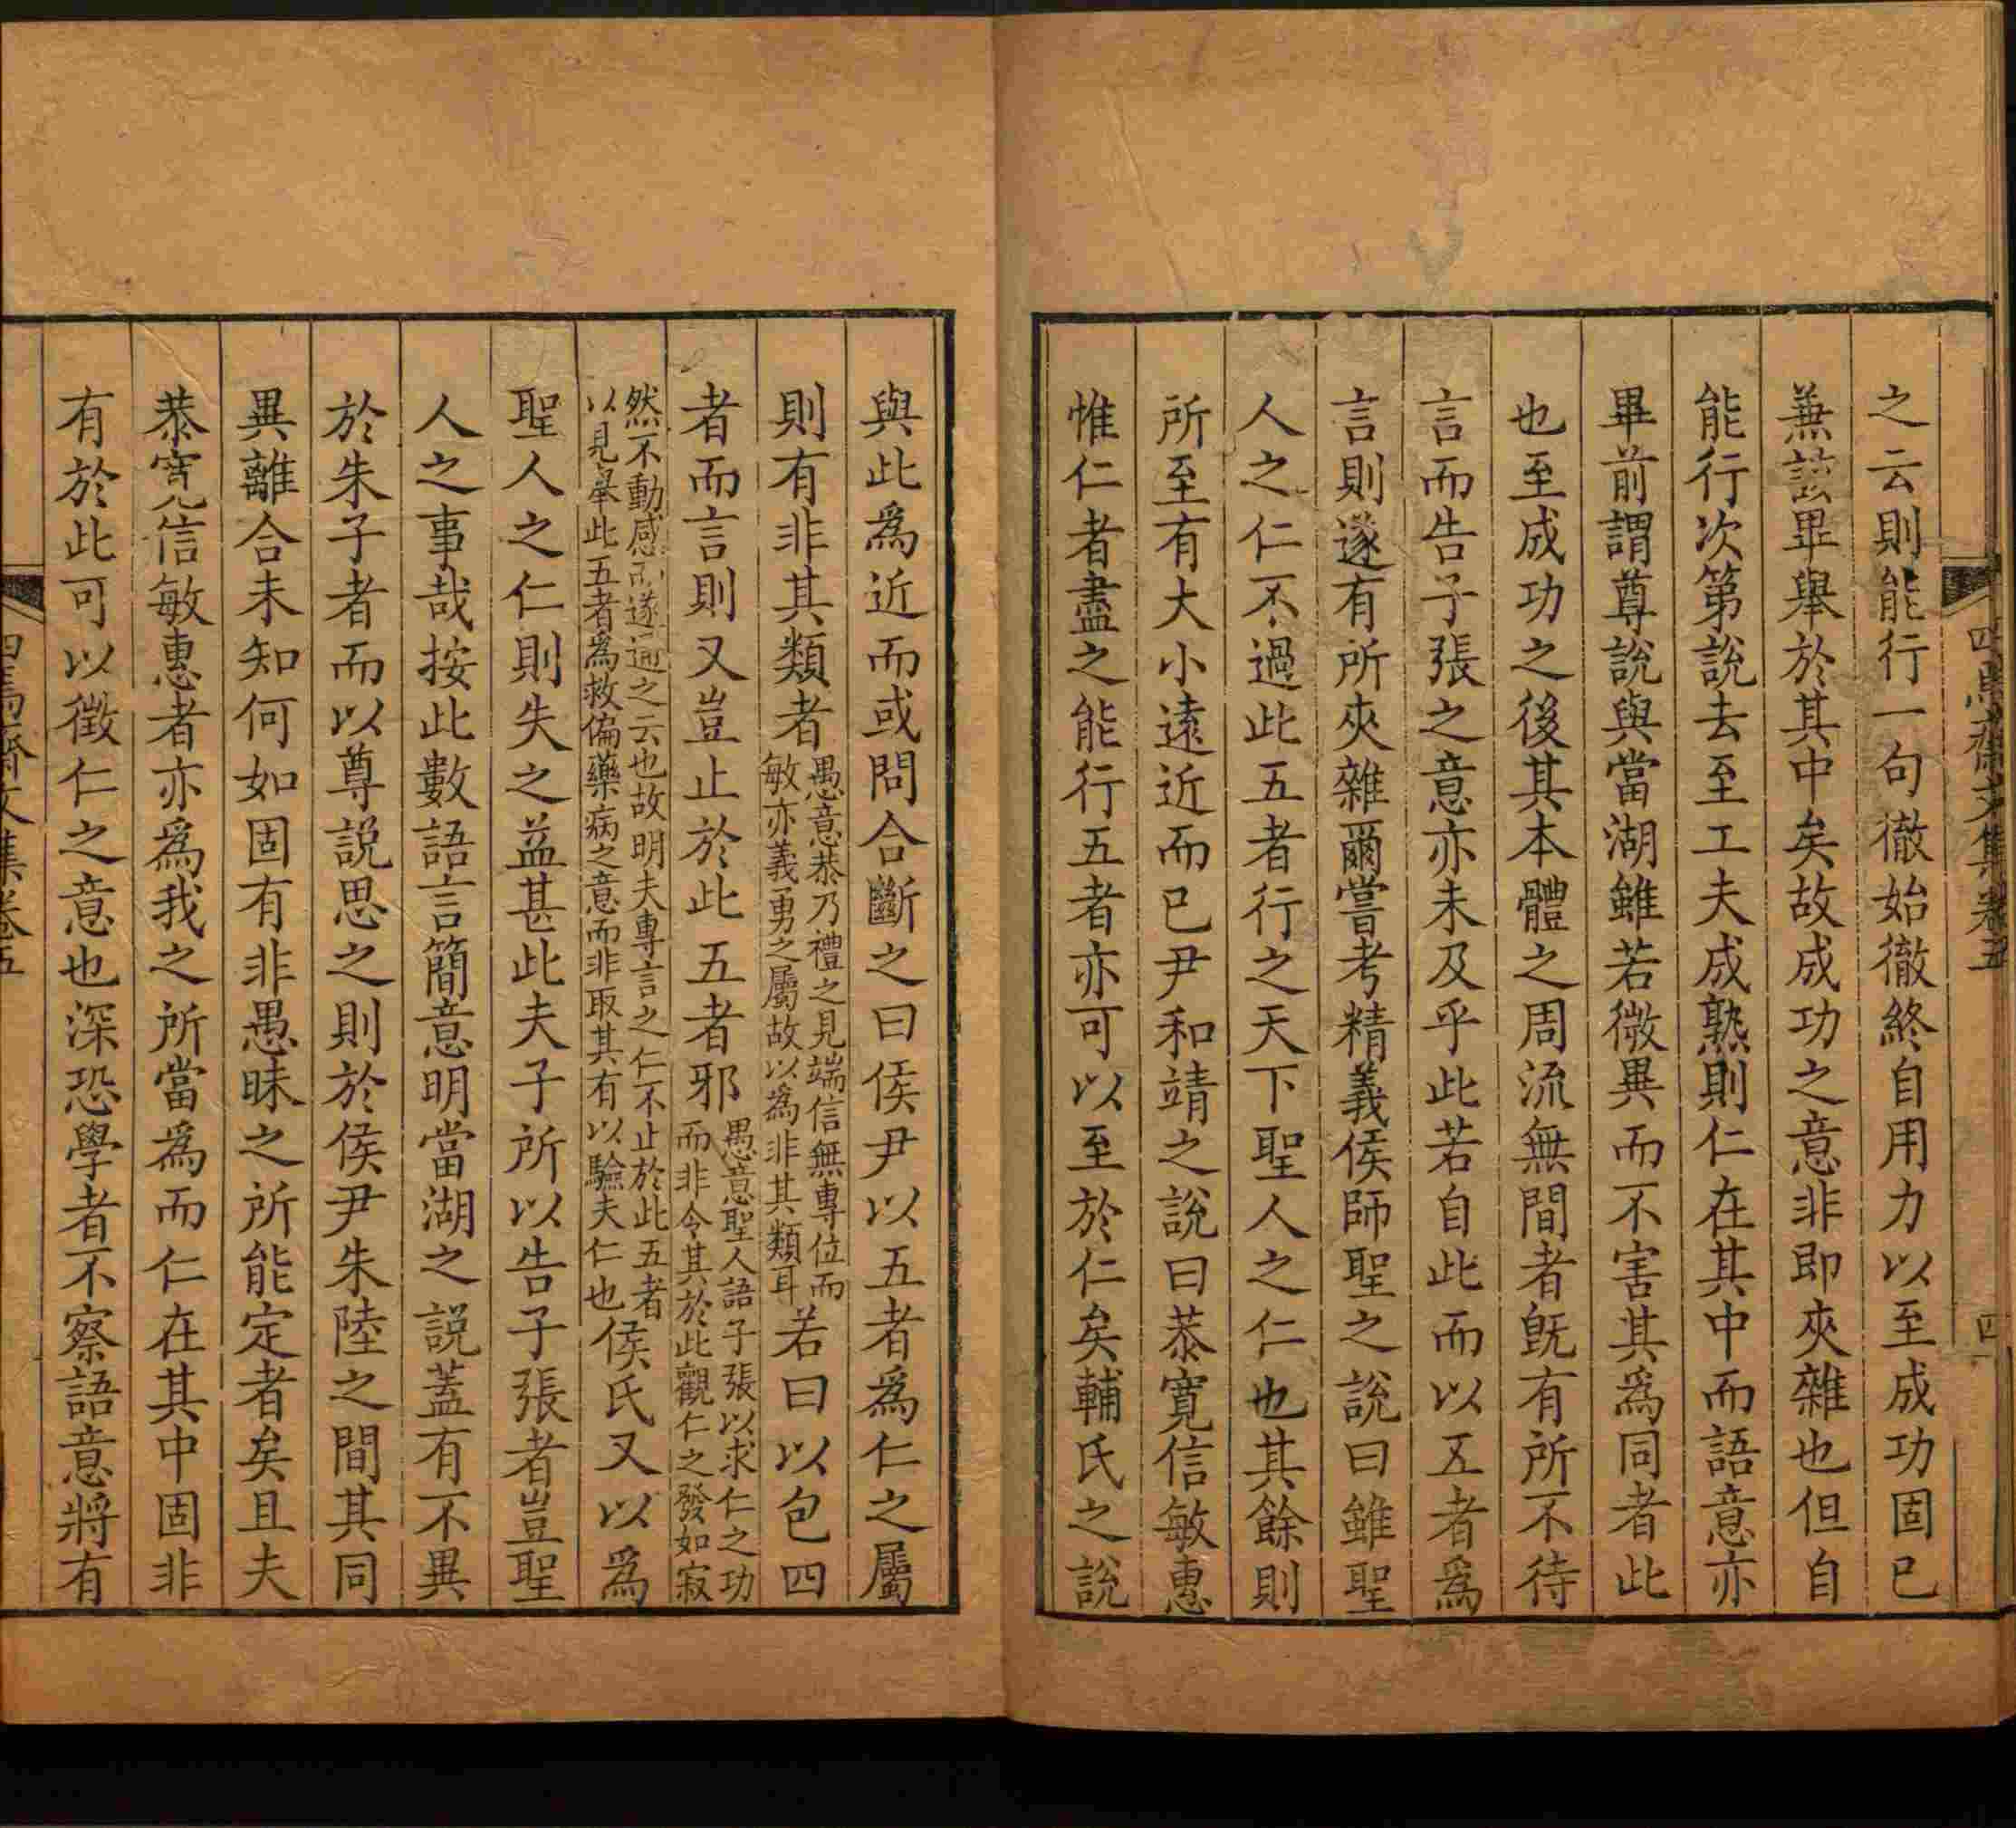 之云則能行一句徹始徹終自用力以至成功固已
兼該畢舉於其中矣故成功之意非即夾雜也但自
能行次第說去至工夫成熟則仁在其中而語意亦
畢前謂尊說與當湖雖若微異而不害其為同者此
也至成功之後其本體之周流無間者旣有所不待
言而告子張之意亦未及乎此若自此而以五者為
言則遂有所夾雜爾嘗考精義侯師聖之說曰雖聖
人之仁不過此五者行之天下聖人之仁也其餘則
所至有大小遠近而已尹和靖之說曰恭寬信敏惠
惟仁者盡之能行五者亦可以至於仁矣輔氏之說
四
與此為近而或問合斷之曰侯尹以五者為仁之屬
則有非其類者愚意恭乃禮之見端信無專位而敏亦義勇之屬故以為非其類耳若曰以包四
者而言則又豈止於此五者邪愚意聖人語子張以求仁之功而非令其於此觀仁之發如寂
然不動感而遂通之云也故明夫專言之仁不止於此五者以見舉此五者為救偏藥病之意而非取其有以驗夫仁也侯氏又以為
聖人之仁則失之益甚此夫子所以告子張者豈聖
人之事哉按此數語言簡意明當湖之說蓋有不異
於朱子者而以尊說思之則於侯尹朱陸之間其同
異離合未知何如固有非愚昧之所能定者矣且夫
恭寬信敏惠者亦為我之所當為而仁在其中固非
有於此可以徵仁之意也深恐學者不察語意將有